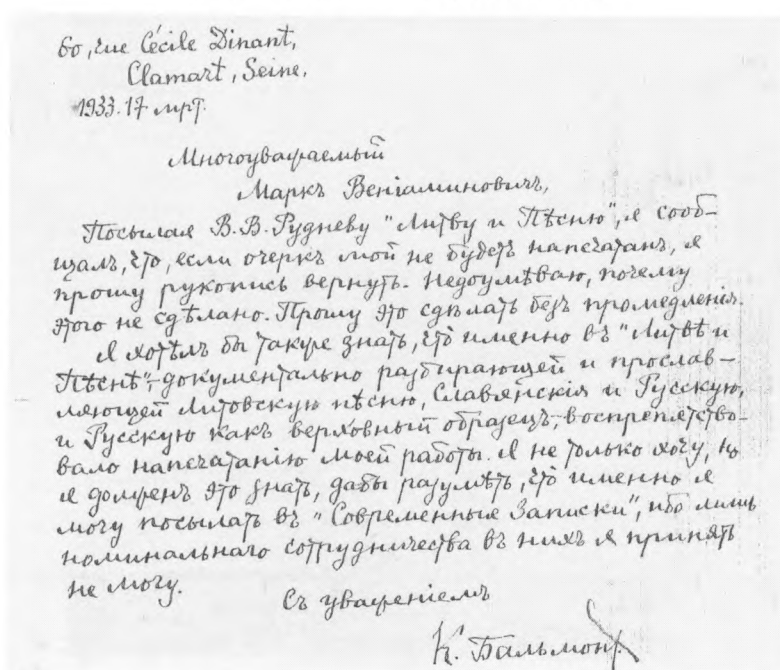 60, rue Cécile Dinant,
Clamart, Seine.
1933. 17 мрт.
Многоуважаемый
Маркъ Веніаминовичъ,
Посылая В.В. Рудневу "Литву и Пѣсню", я сооб-
щалъ, что, если очеркъ мой не будетъ напечатанъ, я
прошу рукопись вернуть. Недоумѣваю, почему
этого не сдѣлано. Прошу это сдѣлать безъ промедленія.
Я хотѣлъ бы также знать, что именно въ "Литвѣ и
Пѣснѣ",- документально разбирающей и прослав-
ляющей Литовскую пѣсню, Славянскія и Русскую,
и Русскую какъ верховный образецъ,- воспрепятство-
вало напечатанію моей работы. Я не только хочу, но
я долженъ это знать, дабы разумѣть, что именно я
могу посылать въ "Современныя Записки", ибо лишь
номинальнаго сотрудничества въ нихъ я принять
не могу.
Съ уваженіемъ
К. Бальмонт.